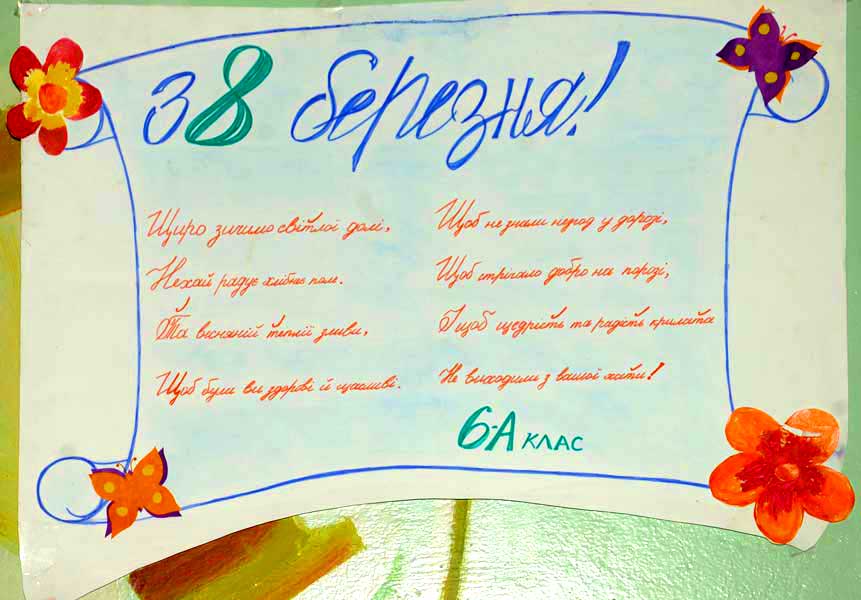 З 8 березня!
Щиро зичимо світлої долі,
Нехай радує хлібнеє поле.
Та весняній теплії зливи,
Щоб були ви здорові й щасливі.
Щоб не знали негод у дорозі,
Щоб стрігало добро на порозі,
І щоб щедрість та радість крилата
Не виходили з вашої хати!
6-А клас